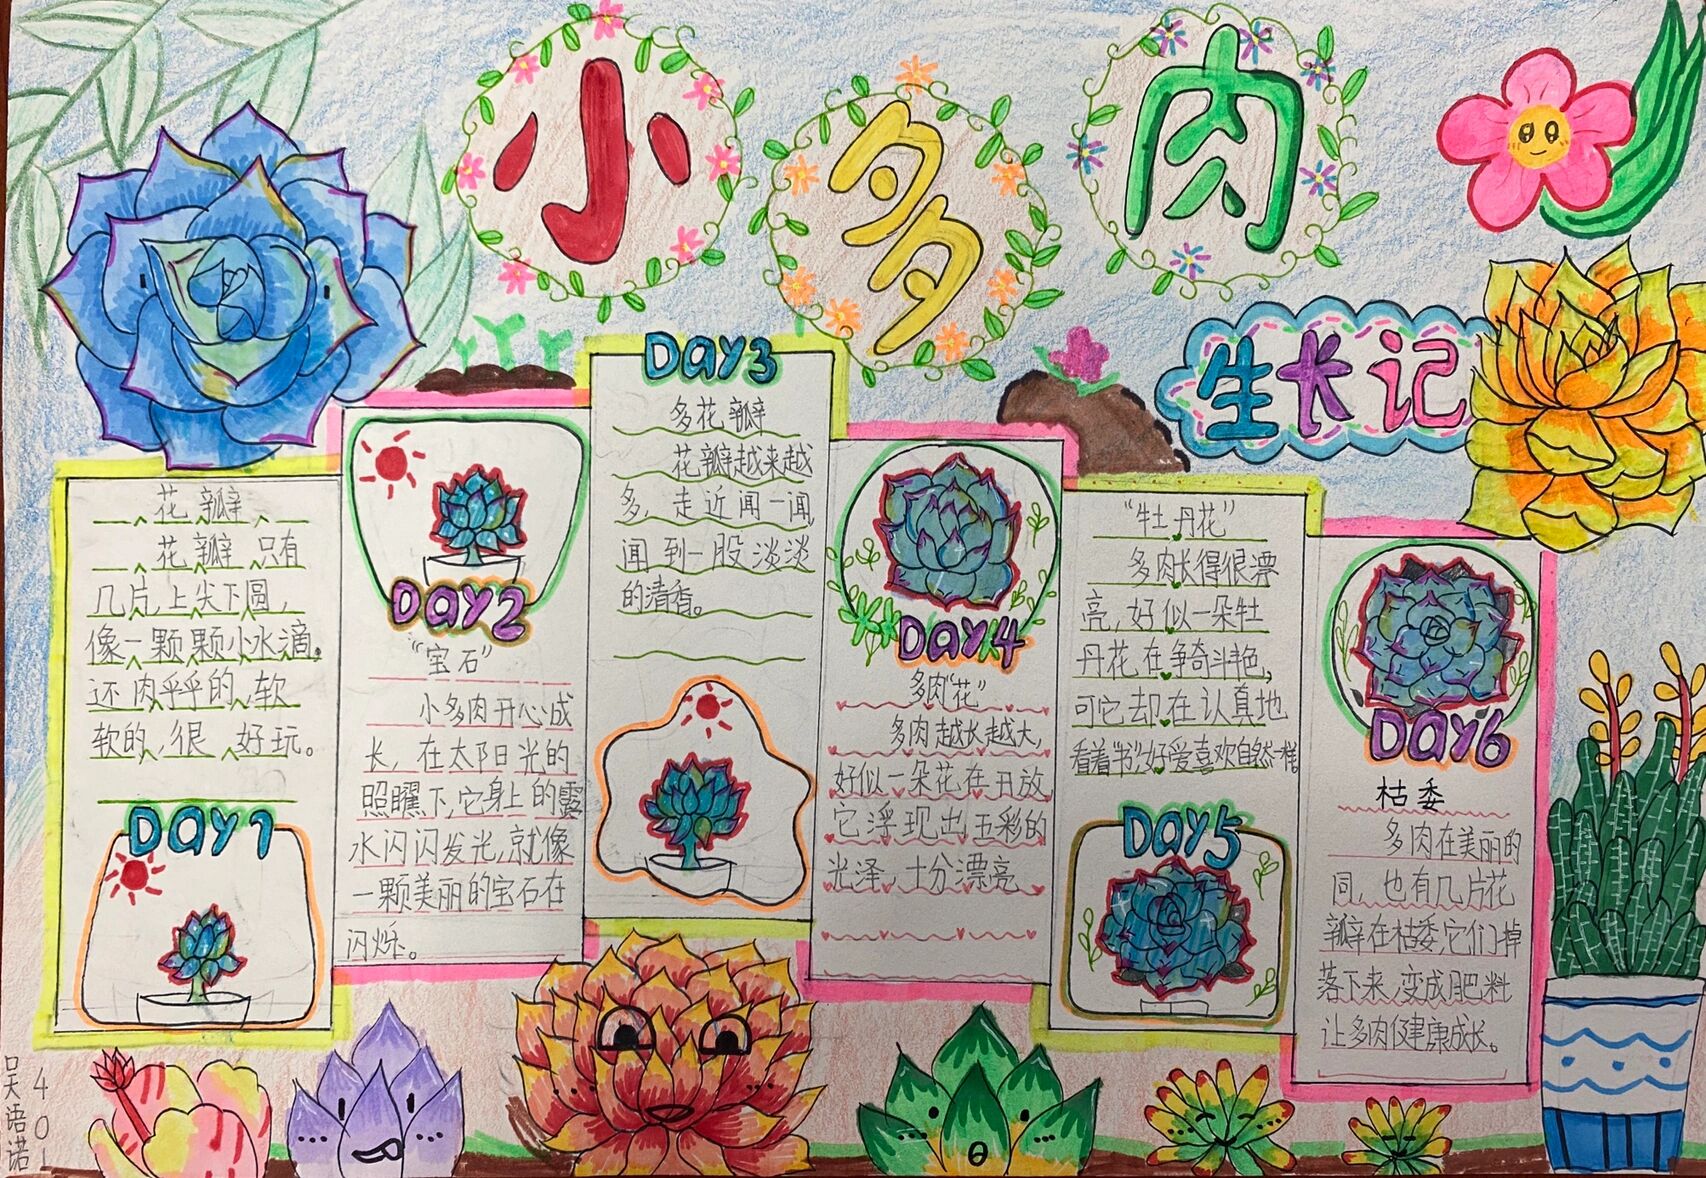 小多肉
生长记
花瓣
花瓣只有
几片上尖下圆，
像一颗颗小水滴。
还肉乎乎的，软
软的，很好玩。
DAY1
DAY2
“宝石”
小多肉开心成
长，在太阳光的
照耀下，它身上的露
水闪闪发光，就像
一颗美丽的宝石在
闪烁。
DAY3
多花瓣
花瓣越来越
多，走近闻一闻
闻到一股淡淡
的清香。
DAY4
多肉“花”
多肉越长越大，
好似一朵花在开放，
它浮现出五彩的
光泽，十分漂亮
“牡丹花”
多肉长得很漂
亮，好似一朵牡
丹花在争奇斗艳，
可它却在认真地
看着“书”，好爱喜欢自然一样。
DAY5
DAY6
枯委
多肉在美丽的
同，也有几片花
瓣在枯委它们掉
落下来，变成肥料
让多肉健康成长。
401
吴语诺